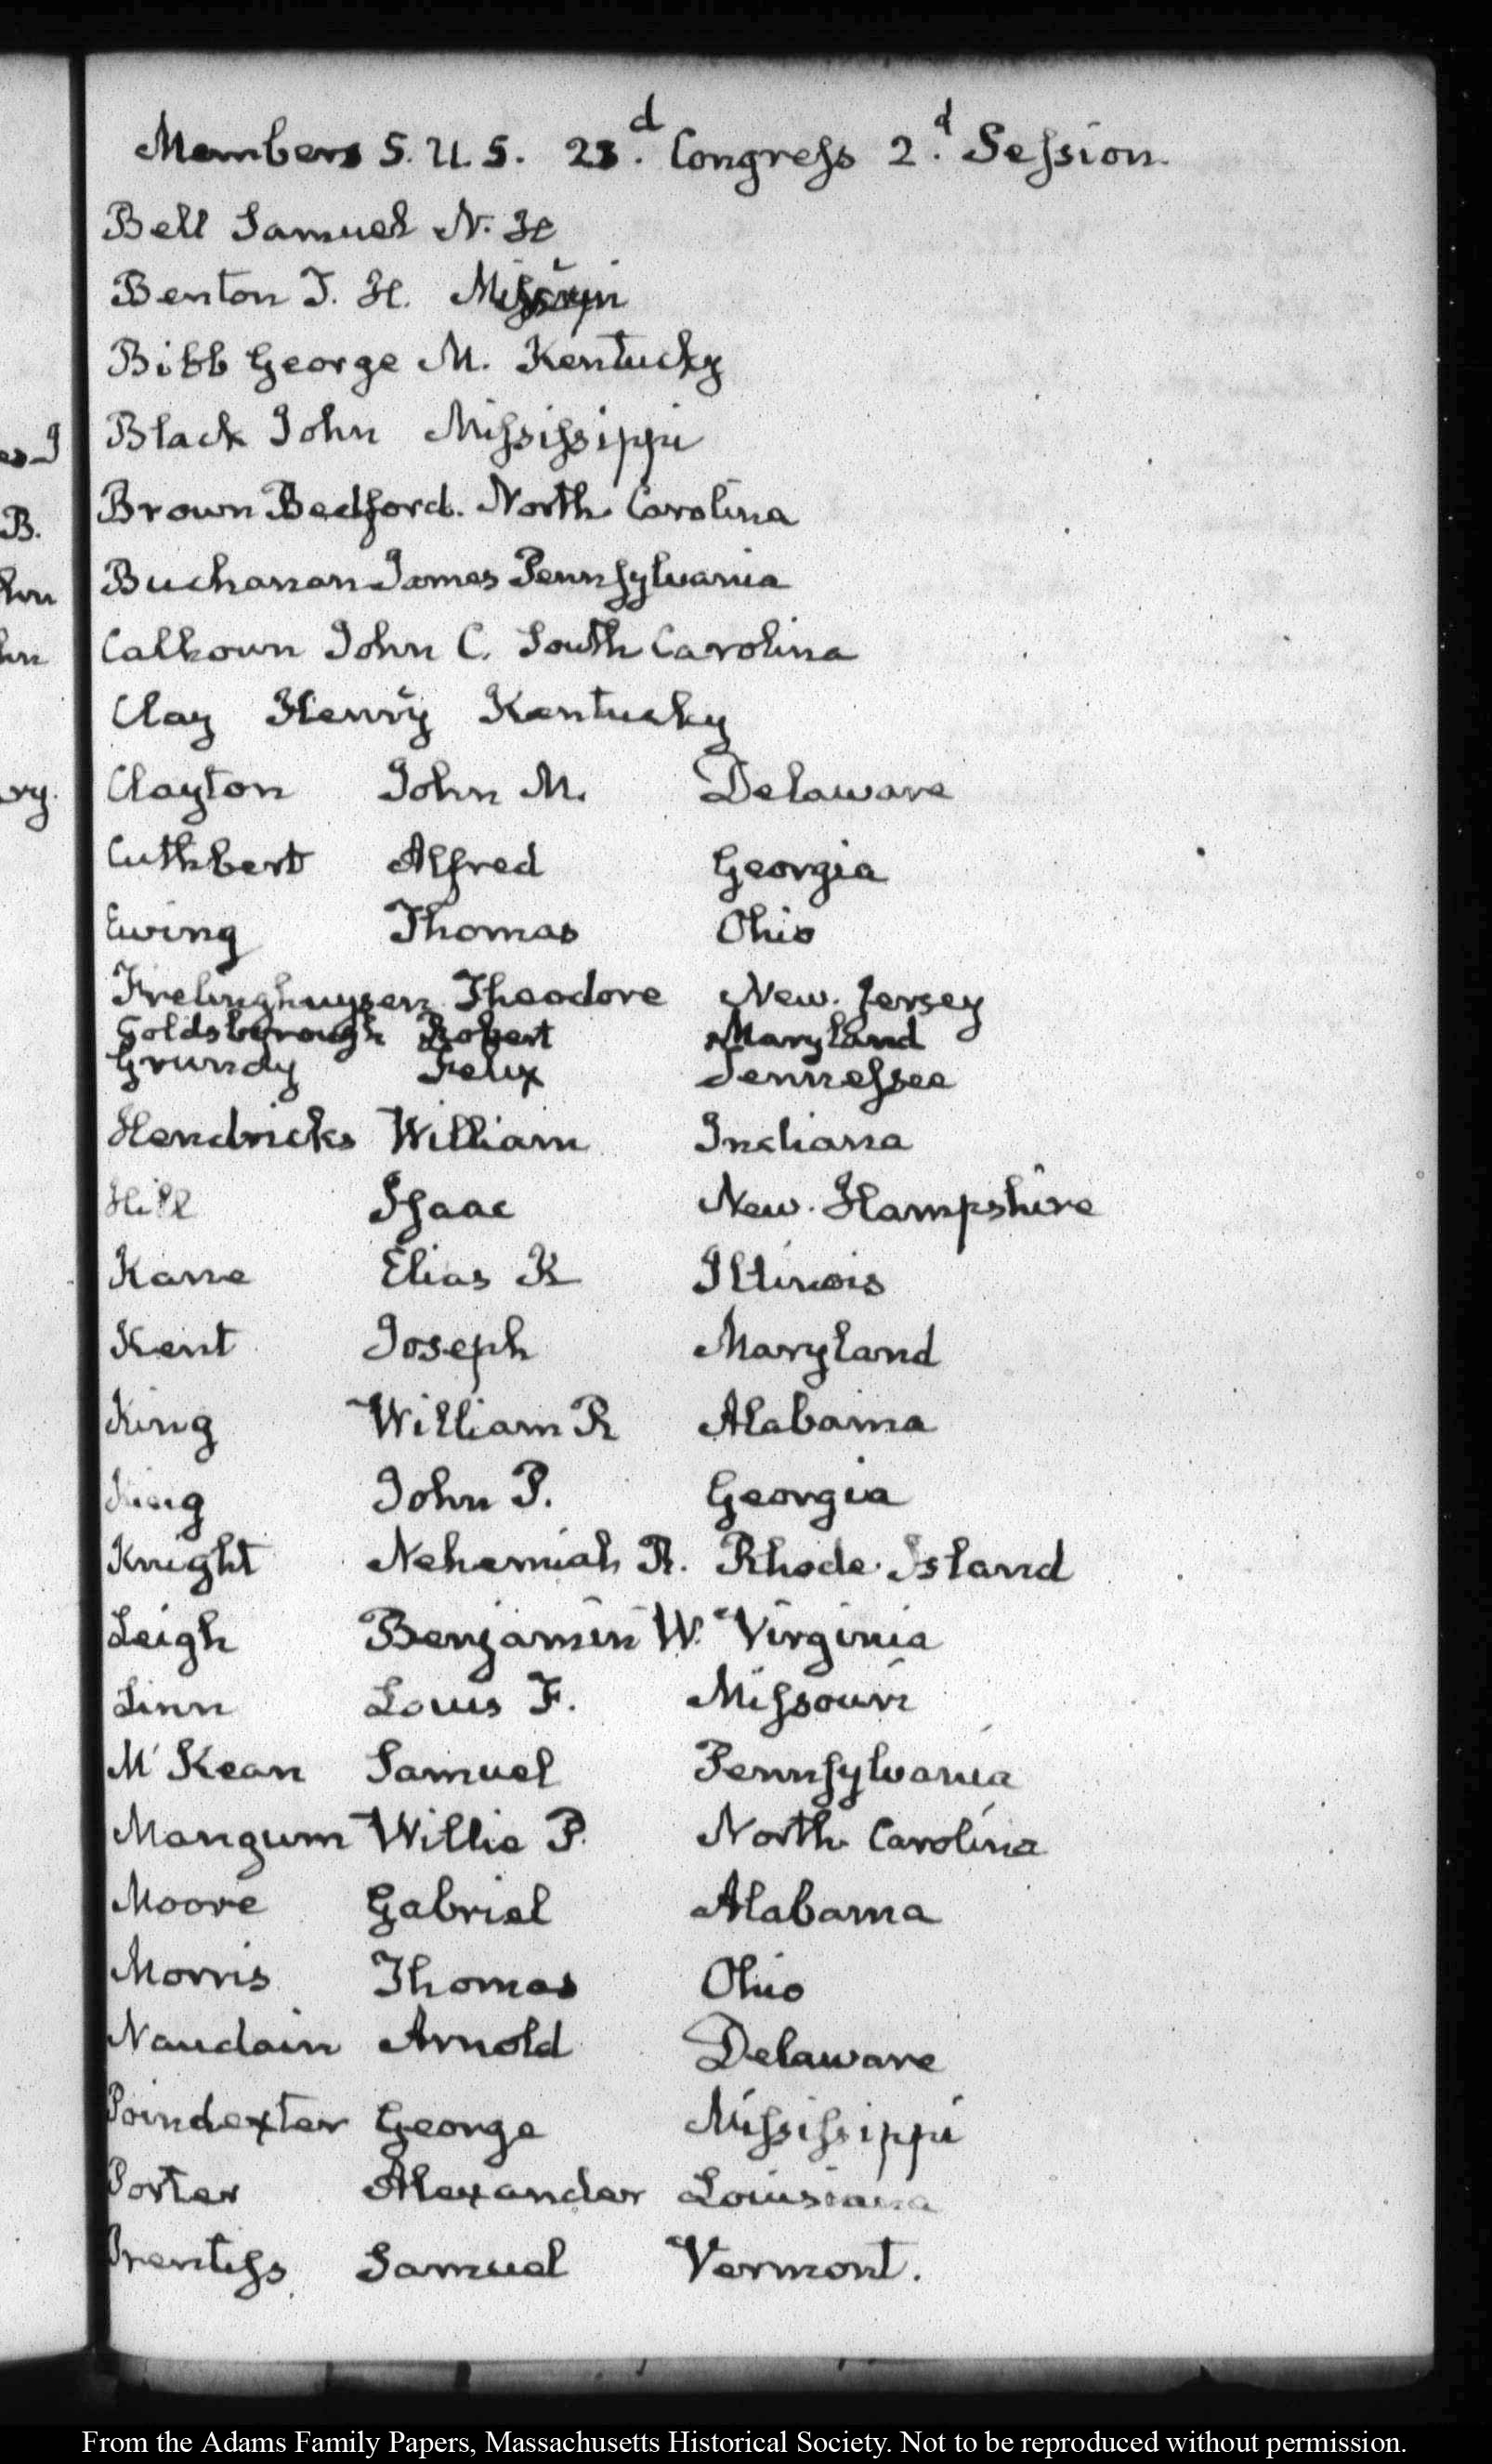 Members S. U S. 23.d Congress 2.d Session
Bell Samuel N. H
Benton T. H.
Bibb George M. Kentucky
Black John Mississippi
Brown Bedford. North Carolina
Buchanan James Pennsylvania
Calhoun John C. South Carolina
Clay Henry Kentucky
Clayton John M. Delaware
Cuthbert Alfred Georgia
Ewing Thomas Ohio
Frelinghuysen Theodore New. Jersey
Goldsborough Robert Maryland
Grundy Felix Tennessee
Hendricks William Indiana
Hill Isaac New. Hampshire
Kane Elias K Illinois
Kent Joseph Maryland
King William R Alabama
King John P. Georgia
Knight Nehemiah R. Rhode. Island
Leigh Benjamin W. Virginia
Linn Louis F. Missouri
M'Kean Samuel Pennsylvania
Mangum Willie P. North Carolina
Moore Gabriel Alabama
Morris Thomas Ohio
Naudain Arnold Delaware
Poindexter George Mississippi
Porter Alexander Louisiana
Prentiss Samuel Vermont.
From the Adams Family Papers, Massachusetts Historical Society. Not to be reproduced without permission.